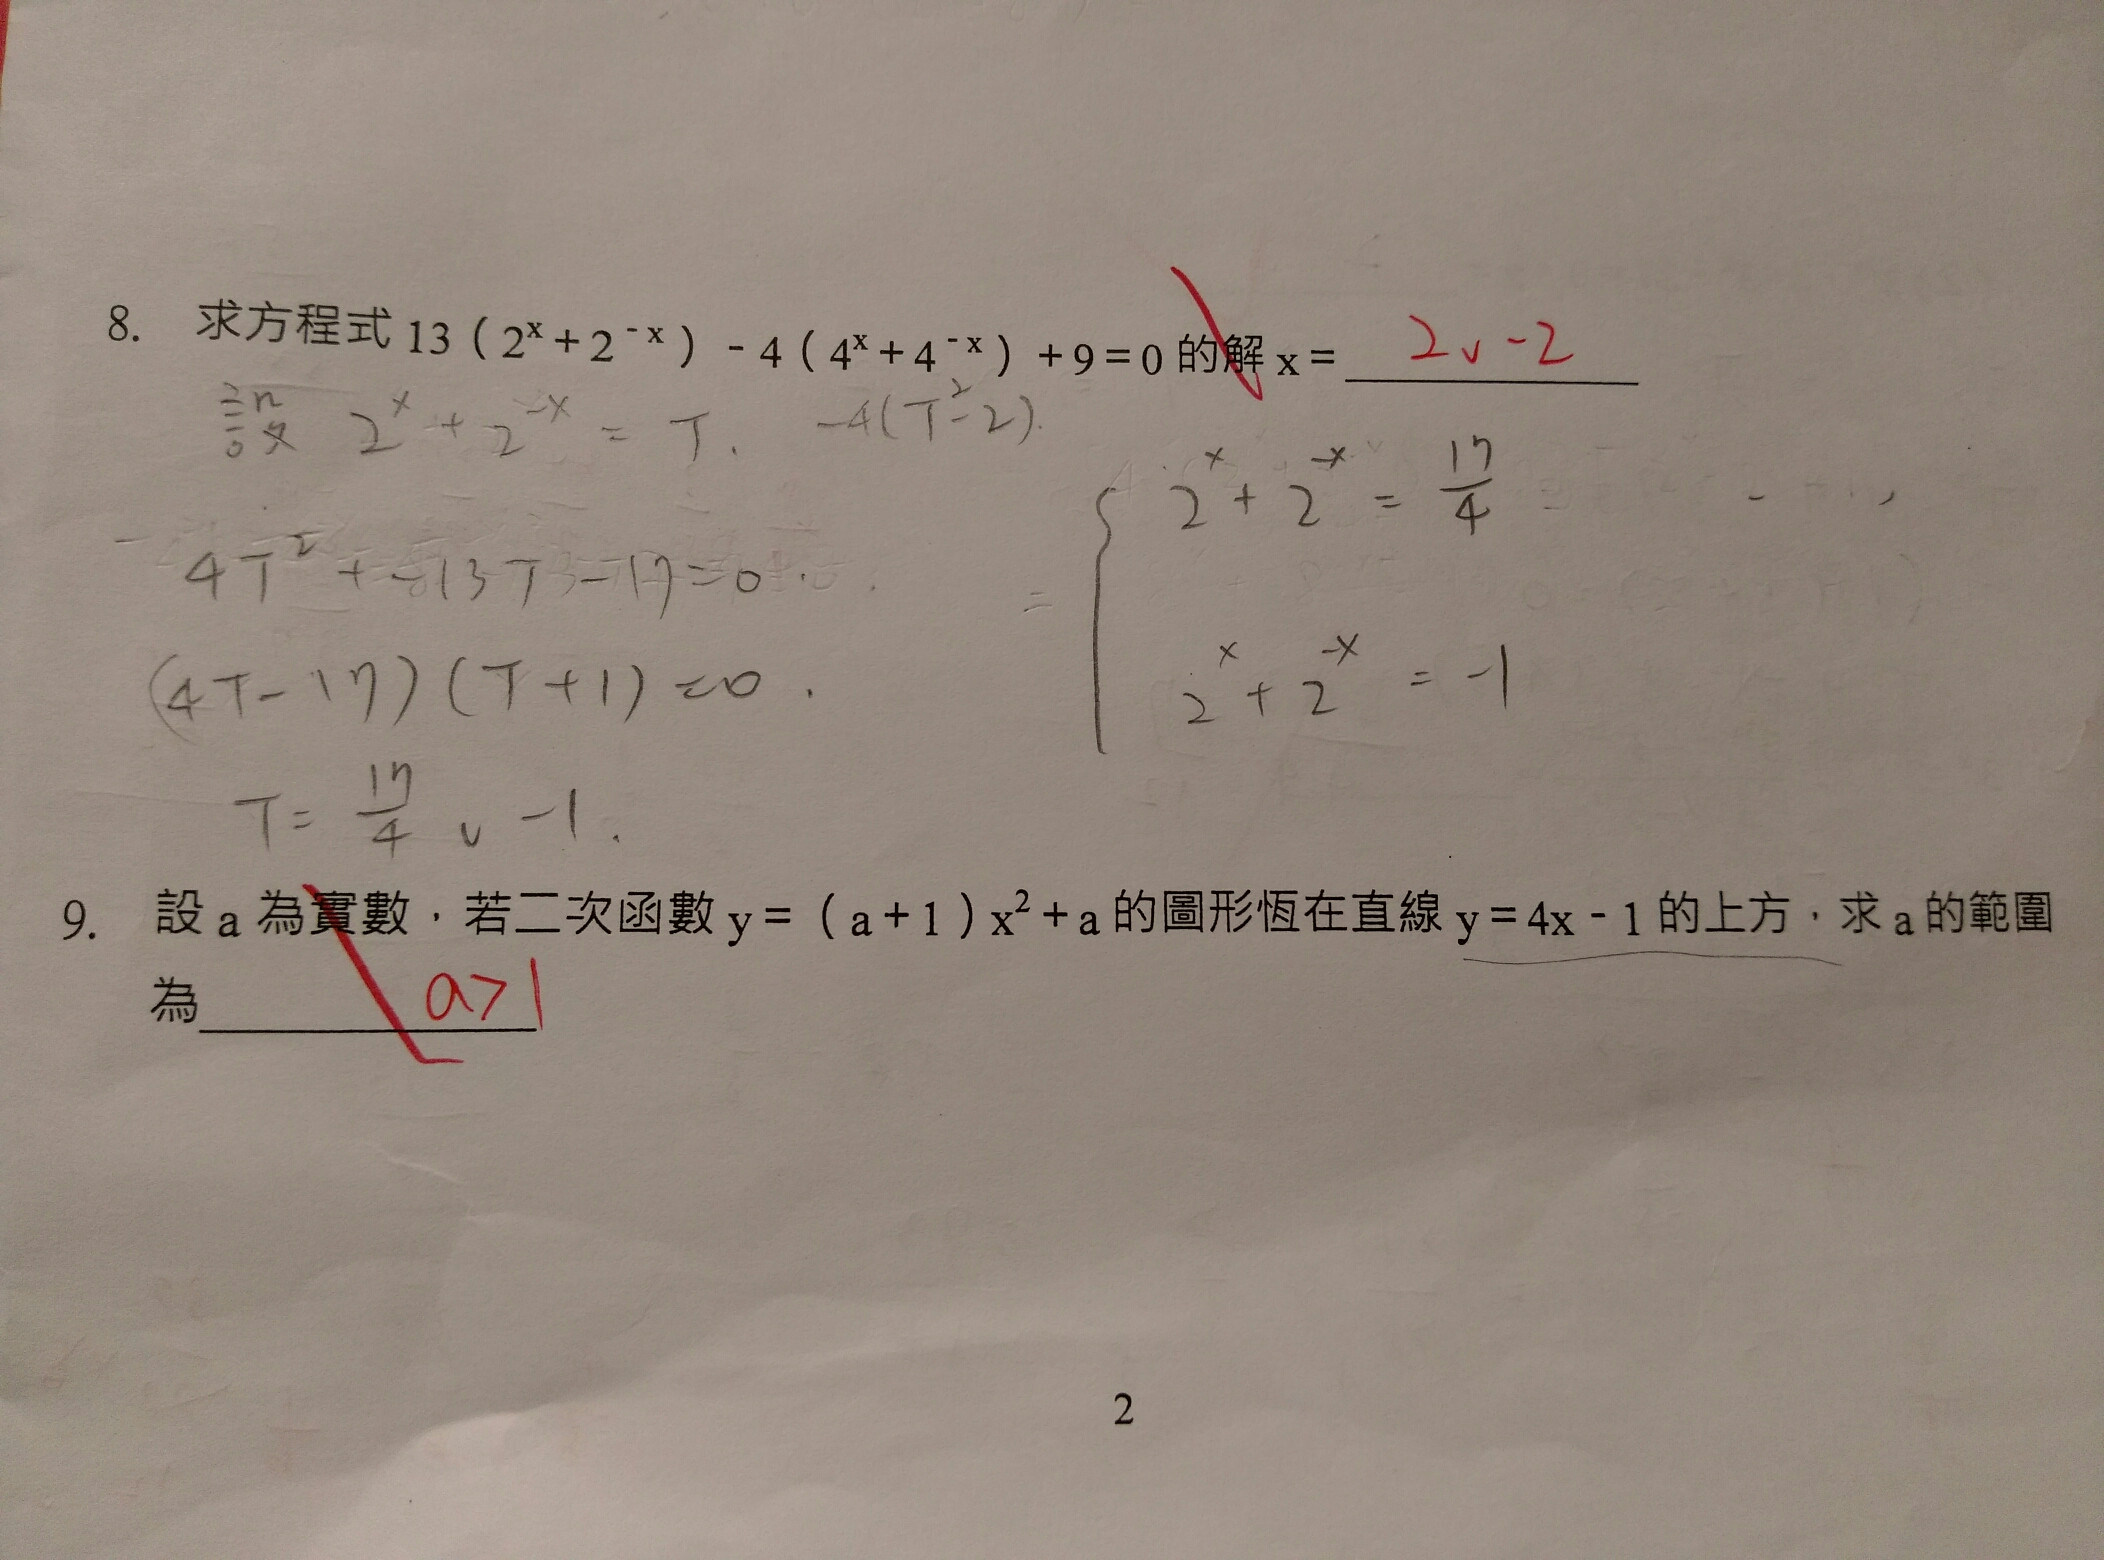 8. 求方程式 13（2ˣ+2⁻ˣ）-4（4ˣ+4⁻ˣ）+9=0 的解 x= 2 ∨ -2
設 2ˣ + 2⁻ˣ = T. -4(T²-2).
4T² + -13T -17=0.
(4T-17)(T+1)=0.
T= 17/4 ∨ -1.
= { 2ˣ + 2⁻ˣ = 17/4
2ˣ + 2⁻ˣ = -1
9. 設 a 為實數，若二次函數 y=（a+1）x²+a 的圖形恆在直線 y=4x-1 的上方，求 a 的範圍
為 a>1
2